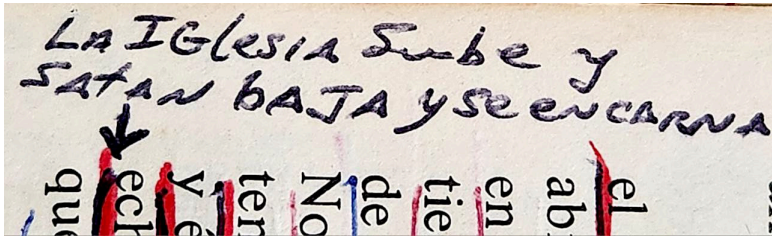 LA IGlesia Sube y
SATAN bAJA y se encARNA
el
ab
en
tie
de
No
ten
y é
ech
que